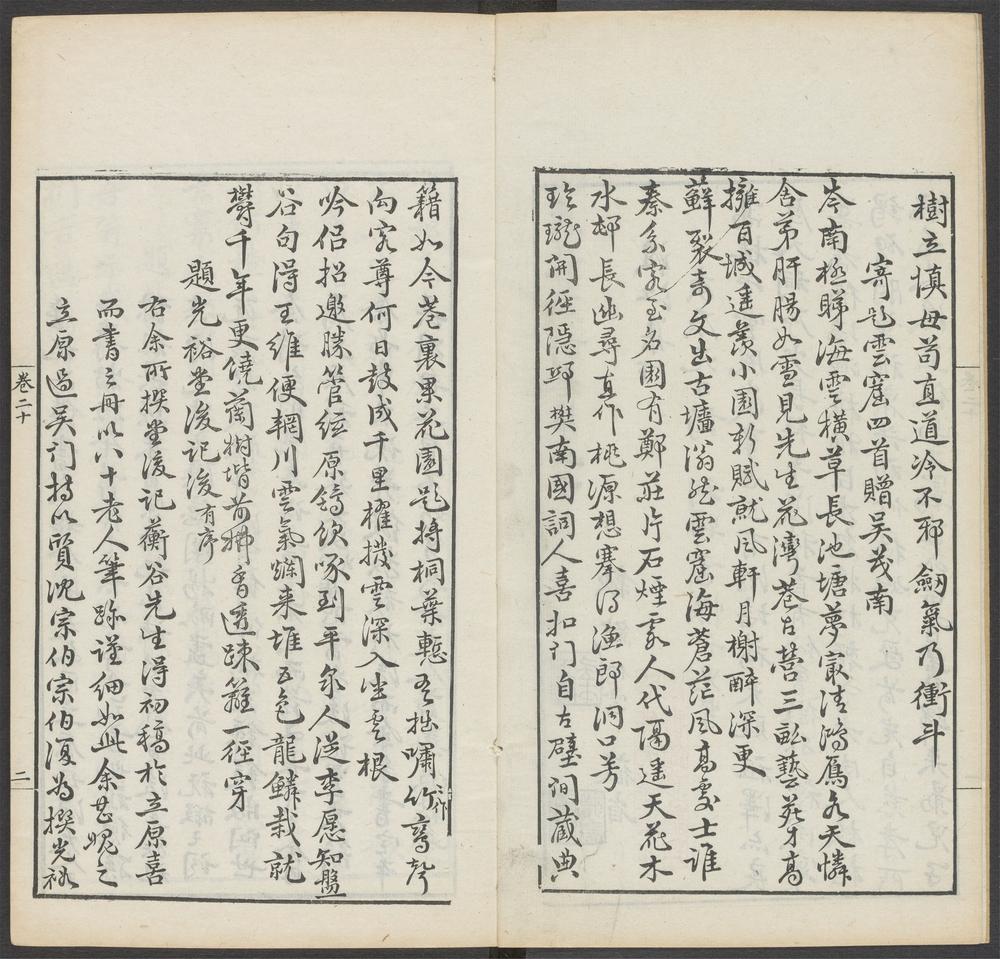 樹立慎毋苟直道冷不邪劒氣乃衝斗
寄題雲窟四首贈吳茂南
岑南極睇海雲橫草長池塘夢寂清鴻雁各天憐
舍弟肝腸如雪見先生花灣巷古營三畝藝苑才高
擁百城遙羨小園新賦就風軒月榭醉深更
蘚裂奇文出古壇滃然雲窟海蒼茫風高處士誰
秦系客至名園有鄭莊片石煙霞人代隔遙天花木
水邨長幽尋直作桃源想搴得漁郎洞口芳
玲瓏開徑隱野樊南國詞人喜扣門自古壁間藏典
籍如今巷裏果花園題將桐葉慙吾拙嘯作竹鸞聲
向客尊何日鼓成千里櫂撥雲深入坐雲根
吟侶招邀勝管絃原鶴飲啄到平泉人從李愿知盤
谷句得王維便輞川雲氣爛來堆五色龍鱗栽就
鬱千年更饒蘭樹堦前拂香透疎籬一徑穿
題光裕堂後記後有序
右余所撰堂後記蘅谷先生得初稿於立原喜
而書之冊以八十老人筆跡謹細如此余甚媿之
立原過吳門持以質沈宗伯宗伯復為撰光裕
卷二十
二